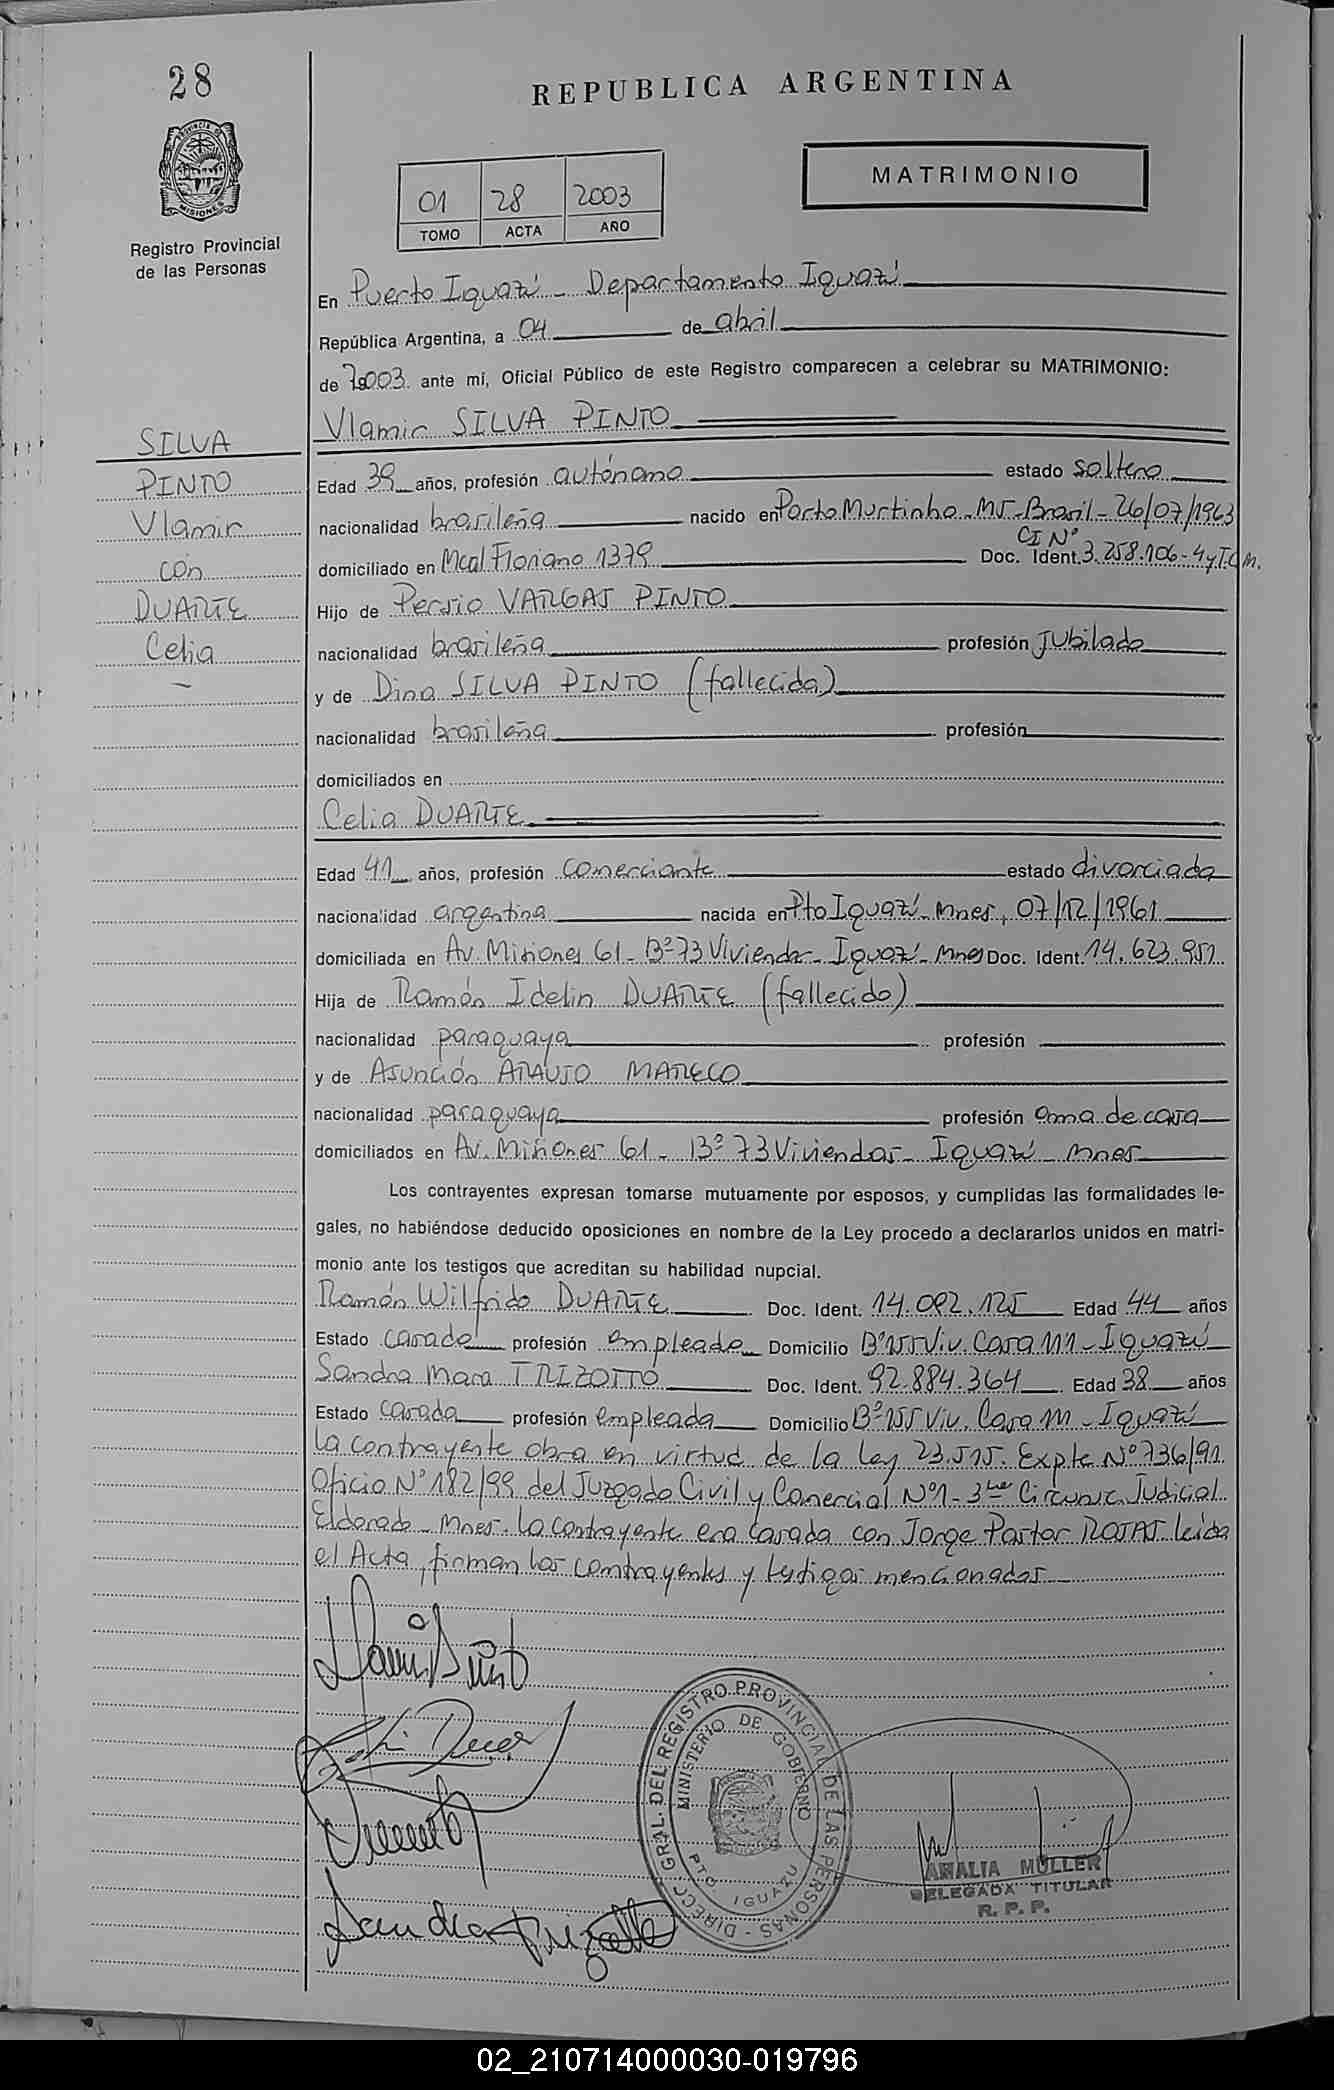 28
REPUBLICA ARGENTINA
PROVINCIA DE
MISIONES
Registro Provincial
de las Personas
MATRIMONIO
01 28 2003
TOMO ACTA AÑO
En Puerto Iguazú - Departamento Iguazú
República Argentina, a 04 de abril
de 2003 ante mí, Oficial Público de este Registro comparecen a celebrar su MATRIMONIO:
SILVA
PINTO
Vlamir
con
DUARTE
Celia
Vlamir SILVA PINTO
Edad 39 años, profesión autónomo estado soltero
nacionalidad brasileña nacido en Porto Murtinho - MT - Brasil - 26/07/1963
CI Nº
domiciliado en Mcal Floriano 1379 Doc. Ident. 3.258.106-4 y T.C.M.
Hijo de Persio VARGAS PINTO
nacionalidad brasileña profesión jubilado
y de Dina SILVA PINTO (fallecida)
nacionalidad brasileña profesión
domiciliados en
Celia DUARTE
Edad 41 años, profesión comerciante estado divorciada
nacionalidad argentina nacida en Pto Iguazú - Mnes, 07/12/1961
domiciliada en Av. Misiones 61 - Bº 73 Viviendas - Iguazú - Mnes Doc. Ident. 14.623.951
Hija de Ramón Idelin DUARTE (fallecido)
nacionalidad paraguaya profesión
y de Asunción ARAUJO MARECO
nacionalidad paraguaya profesión ama de casa
domiciliados en Av. Misiones 61 - Bº 73 Viviendas - Iguazú - Mnes
Los contrayentes expresan tomarse mutuamente por esposos, y cumplidas las formalidades le-
gales, no habiéndose deducido oposiciones en nombre de la Ley procedo a declararlos unidos en matri-
monio ante los testigos que acreditan su habilidad nupcial.
Ramón Wilfrido DUARTE Doc. Ident. 14.092.125 Edad 44 años
Estado casado profesión empleado Domicilio Bº 155 Viv. Casa 111 - Iguazú
Sandra Mara TRIZOTTO Doc. Ident. 92.884.364 Edad 38 años
Estado casada profesión empleada Domicilio Bº 155 Viv. Casa 111 - Iguazú
La contrayente obra en virtud de la Ley 23.515. Expte Nº 736/91
Oficio Nº 182/99 del Juzgado Civil y Comercial Nº1 - 3era Circunsc. Judicial
Eldorado - Mnes. La contrayente era casada con Jorge Pastor ROJAS leída
el Acta, firman los contrayentes y testigos mencionados
DIRECC. GRAL. DEL REGISTRO PROVINCIAL DE LAS PERSONAS
MINISTERIO DE GOBIERNO
PTO. IGUAZU
Sandra Trizotto
AMALIA MULLER
DELEGADA TITULAR
R. P. P.
02_210714000030-019796